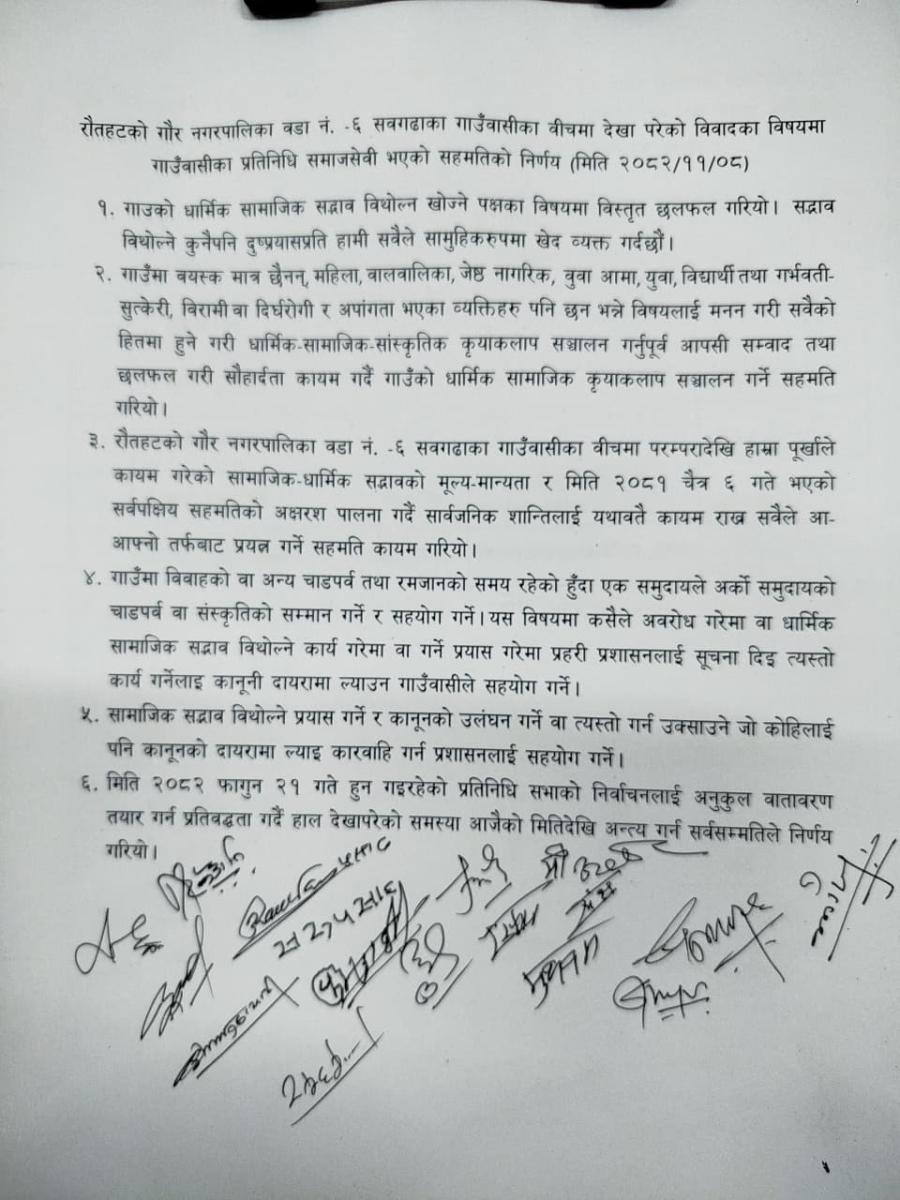 रौतहटको गौर नगरपालिका वडा नं. -६ सवगढाका गाउँवासीका वीचमा देखा परेको विवादका विषयमा
गाउँवासीका प्रतिनिधि समाजसेवी भएको सहमतिको निर्णय (मिति २०८२/११/०८)
१. गाउको धार्मिक सामाजिक सद्भाव विथोल्न खोज्ने पक्षका विषयमा विस्तृत छलफल गरियो। सद्भाव
विथोल्ने कुनैपनि दुष्प्रयासप्रति हामी सवैले सामुहिकरुपमा खेद व्यक्त गर्दछौं।
२. गाउँमा वयस्क मात्र छैनन्, महिला, वालवालिका, जेष्ठ नागरिक, वुवा आमा, युवा, विद्यार्थी तथा गर्भवती-
सुत्केरी, विरामी वा दिर्घरोगी र अपांगता भएका व्यक्तिहरु पनि छन भन्ने विषयलाई मनन गरी सवैको
हितमा हुने गरी धार्मिक-सामाजिक-सांस्कृतिक कृयाकलाप सञ्चालन गर्नुपूर्व आपसी सम्वाद तथा
छलफल गरी सौहार्दता कायम गर्दै गाउँको धार्मिक सामाजिक कृयाकलाप सञ्चालन गर्ने सहमति
गरियो।
३. रौतहटको गौर नगरपालिका वडा नं. -६ सवगढाका गाउँवासीका वीचमा परम्परादेखि हाम्रा पूर्खाले
कायम गरेको सामाजिक-धार्मिक सद्भावको मूल्य-मान्यता र मिति २०८१ चैत्र ६ गते भएको
सर्वपक्षिय सहमतिको अक्षरश पालना गर्दै सार्वजनिक शान्तिलाई यथावतै कायम राख्न सवैले आ-
आफ्नो तर्फबाट प्रयत्न गर्ने सहमति कायम गरियो।
४. गाउँमा विवाहको वा अन्य चाडपर्व तथा रमजानको समय रहेको हुँदा एक समुदायले अर्को समुदायको
चाडपर्व वा संस्कृतिको सम्मान गर्ने र सहयोग गर्ने। यस विषयमा कसैले अवरोध गरेमा वा धार्मिक
सामाजिक सद्भाव विथोल्ने कार्य गरेमा वा गर्ने प्रयास गरेमा प्रहरी प्रशासनलाई सूचना दिइ त्यस्तो
कार्य गर्नेलाइ कानूनी दायरामा ल्याउन गाउँवासीले सहयोग गर्ने।
५. सामाजिक सद्भाव विथोल्ने प्रयास गर्ने र कानूनको उलंघन गर्ने वा त्यस्तो गर्न उक्साउने जो कोहिलाई
पनि कानूनको दायरामा ल्याइ कारवाहि गर्न प्रशासनलाई सहयोग गर्ने।
६. मिति २०८२ फागुन २१ गते हुन गइरहेको प्रतिनिधि सभाको निर्वाचनलाई अनुकुल वातावरण
तयार गर्न प्रतिवद्धता गर्दै हाल देखापरेको समस्या आजैको मितिदेखि अन्त्य गर्न सर्वसम्मतिले निर्णय
गरियो।